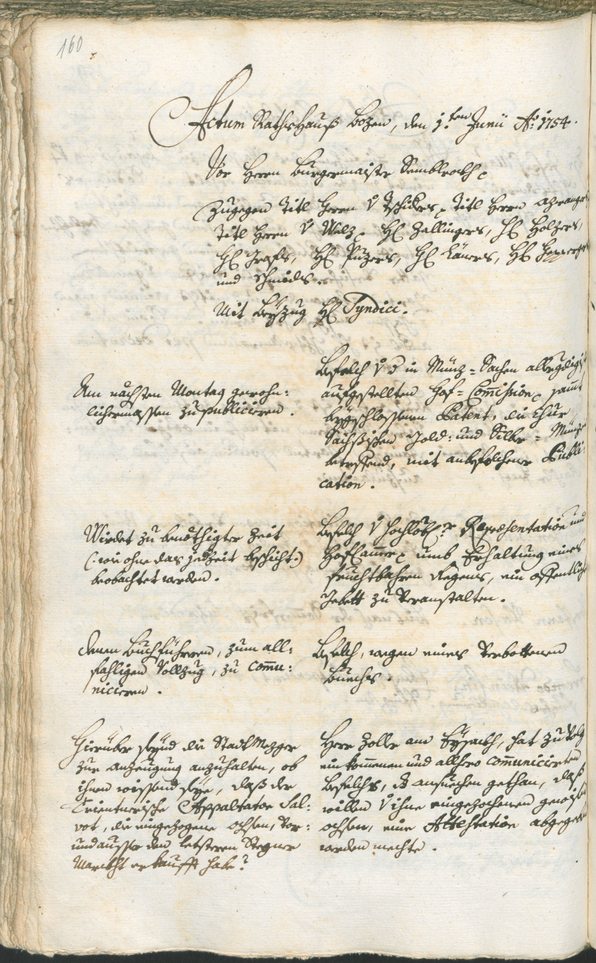 160
Actum Rathshauß Bozen, den 1.ten Junii Ao: 1754.
Vor Herrn Burgermaister
Zugegen Titl Herrn v Titl Herrn
Titl Herrn v Hl: Zallingers, Hl: Holzers,
Hl: Grafs, Hl: Hl: Hl:
und Schmids.
Mit Beyzug Hl: Syndici.
Am nächsten Montag gewohn:
lichermassen zu publicieren.
Befelch in Münz=Sachen
aufgestellten Hof=Comission, samt
beygeschlossenen Patent, die Chur
Sächsischen Gold: und Silber=Münze
betreffend, mit anbefolchener Publi:
cation.
Wirdet zu benöthigter Zeit
(: wie ohne das jederzeit beschicht :)
beobachtet werden.
Befelch v hochlöbl: Repræsentation und
Hofcammer umb Erhaltung eines
fruchtbahren Regens, ein offentliches
Gebett zu veranstalten.
Denen Buechführeren, zum all:
fahligen Vollzug, zu comu:
niciren.
Befelch, wegen eines verbottenen
Buechs.
Hierüber seynd die Stadt Mezger
zur anzeugung anzuhalten, ob
ihnen wissend seye, daß der
Trientnerische Appaltator Sal:
vot, die eingezogene ochsen, vor:
und ausser den letsteren
Marckht erkaufft habe?
Herr Zoller am Eysackh, hat zu folg
einkommenen und allhero comunicierten
Befelchs, das ansuechen gethan, daß
willen ihme eingezochenen
ochsen, eine Attestation abgegeben
werden mechte.